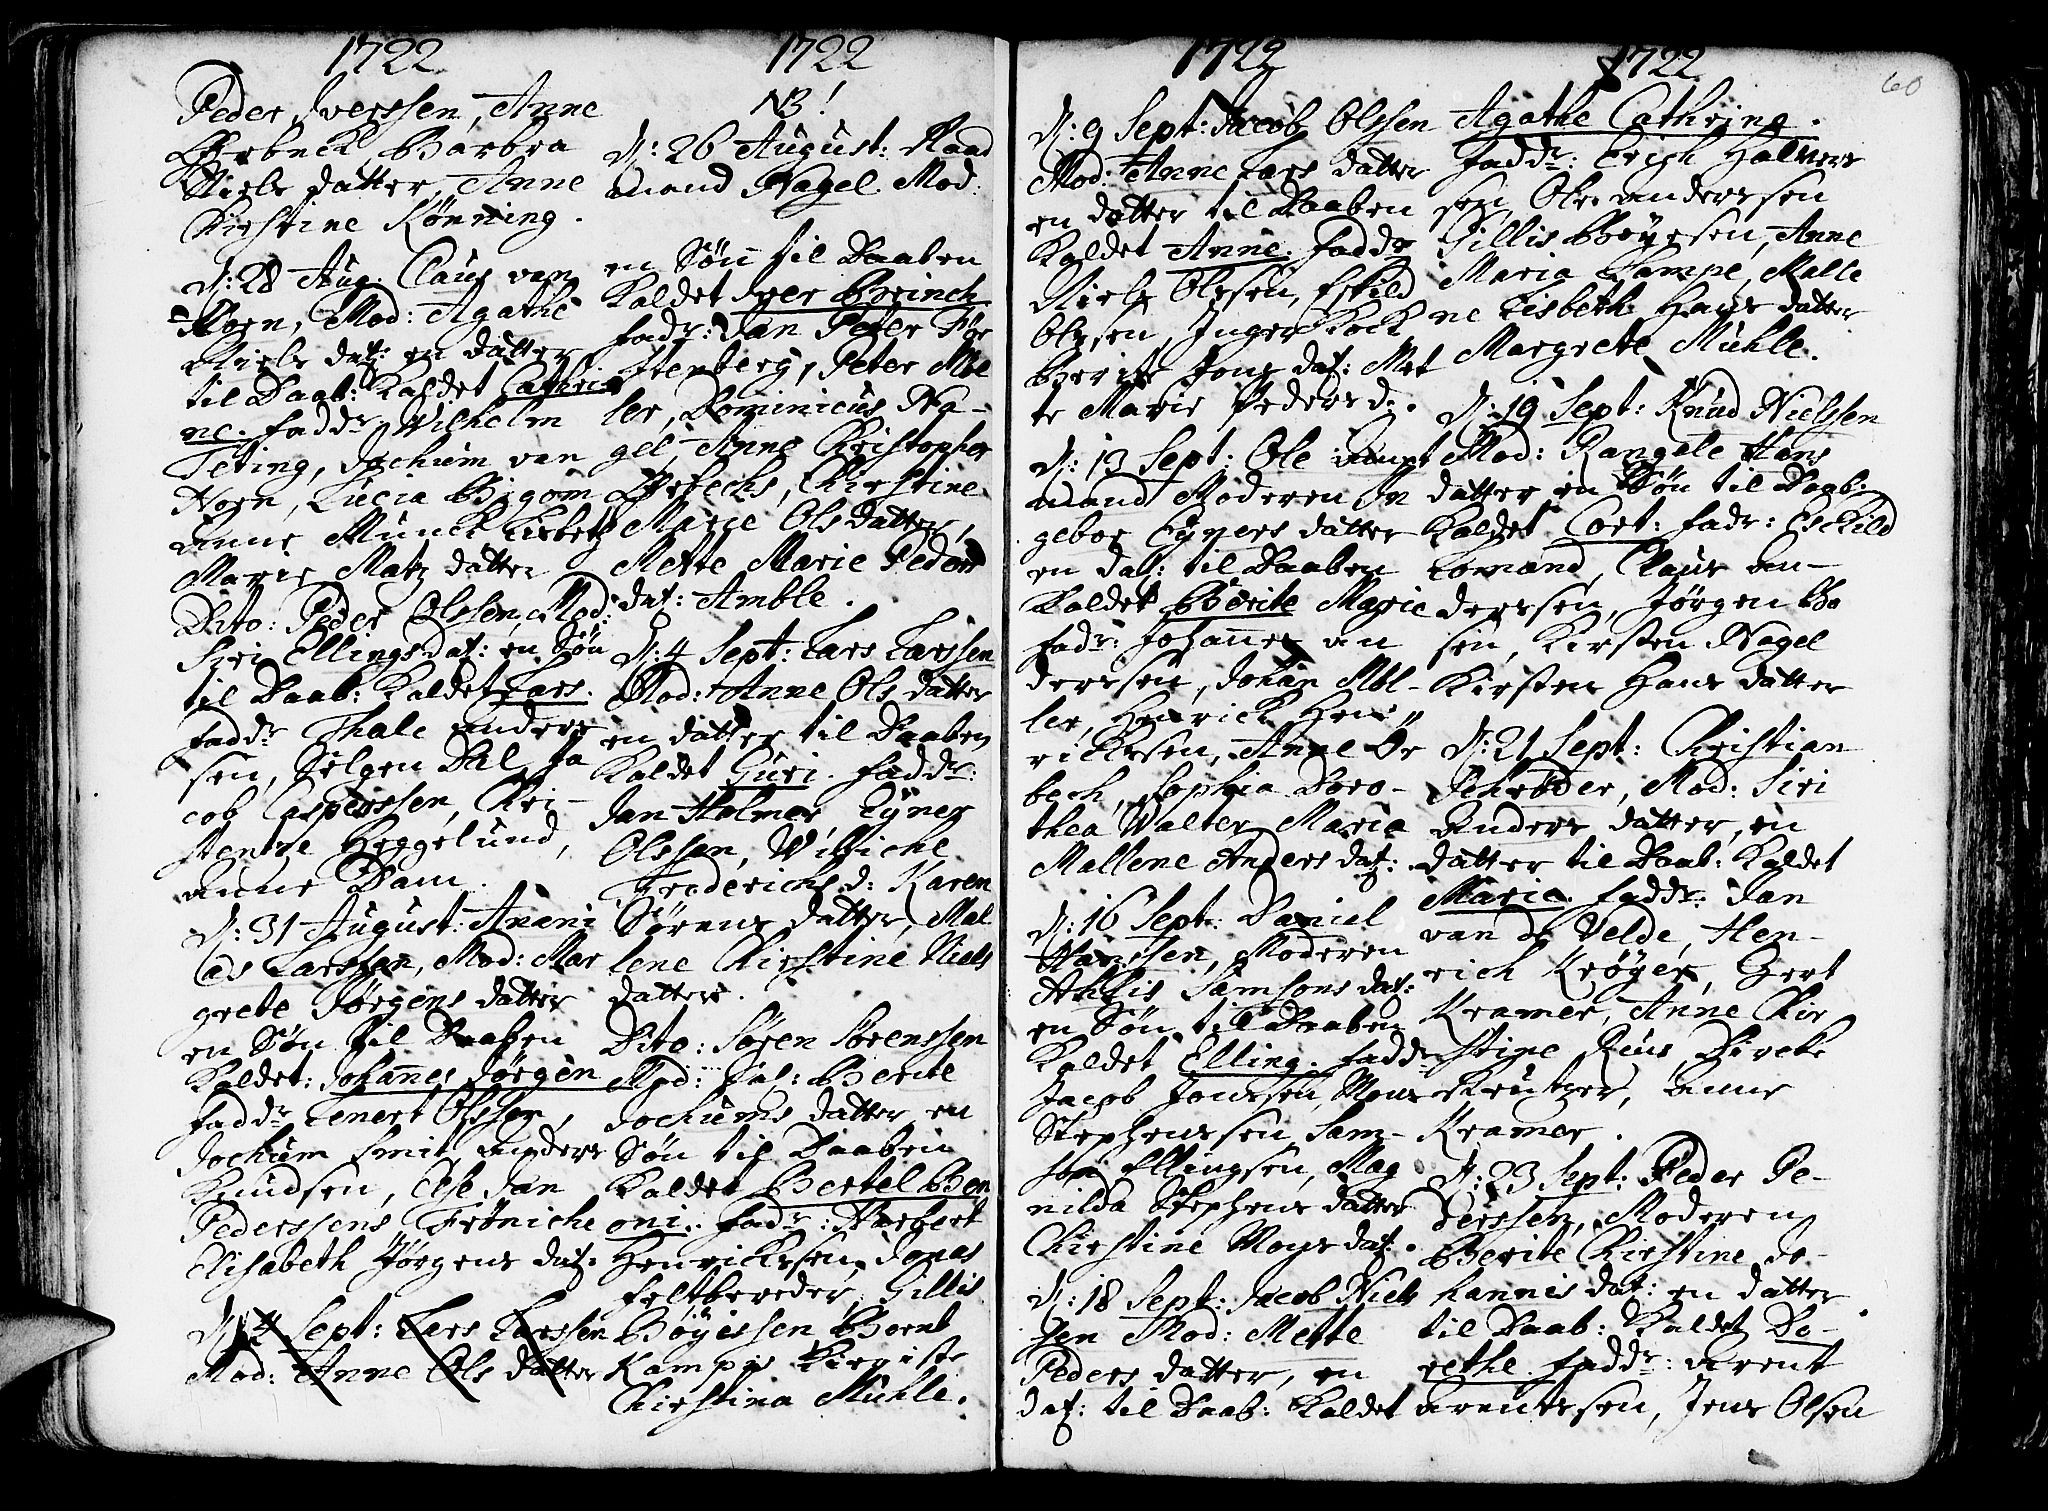 1722
Peder Iverssen, Anne
Ørbeck Barbra
Niels datter, Anne
Kirstine Rønning.
D: 28 Aug. Claus van
Horn, Mod: Agathe
Niels dat: en datter
til Daab: Kaldet Cathri
ne. fadr Wilhelm
Teting, Jochum van
Horn, Lucia Bygom
Anne Munck Lisbet
Marie Matz datter
Dito: Peder Olssen, Mod:
Siri Ellings dat: en Søn
til Daab: Kaldet Lars.
fadr Thale Anders
sen, Jølgen Dal, Ja
cob Casperssen, Chri-
stense Heggelund,
Anne Dam.
D: 31 August: Anani
as Larssen, Mod: Mar
grete Jørgens datter
en Søn til Daaben
Kaldet: Johannes Jørgen
fadr Lenert Olssen,
Jochum Smit Anders
Knudsen, Else Jan
Pederssens Frøniche
Elisabeth Jørgens dat:
D: 4 Sept: Lars Larssen
Mod: Anne Ols datter
1722
NB!
D: 26 August: Raad
mand Nagel Mod:
en Søn til Daaben
Kaldet Iver Breinch
fadr: Jan Peter För
stenberg, Peter Møl
ler, Dominicus Na-
gel, Anne Christopher
Ørbechs, Chirstine
Marie Ols datter,
Mette Marie Peders
dat: Amble.
D: 4 Sept: Lars Larssen
Mod: Anne Ols datter
en datter til Daaben
Kaldet Guri. fadr:
Jan Holmer Eyner
Olssen, Williche
Frederichs d: Karen
Sørens datter, Mal
lene Chirstine Niels
datter.
Dito: Søren Sørenssen
Mod: Sal: Berite
Jochums datter en
Søn til Daaben
Kaldet Bertel Ben
oni. fadr: Herbert
Henrickssen, Jonas
feltbereder, Gillis
Bøyessen Bernt
Kampis
Chirstina Muhle.
1722
D: 9 Sept: Jacob Olssen
Mod: Anne Lars datter
en datter til Daaben
Kaldet Anne fadr
Niels Olssen, Eskild
Olssen, Inger Kock
Berite Jons dat: Met
te Marie Peders d.
D: 13 Sept: Ole Amt
mand Moderen In
gebor Eyners datter
en dat: til Daaben
Kaldet Berite Marie
fadr: Johannes An
derssen, Johan Møl-
ler, Henrick Hen
rickssen, Anne Ør
bech, Sophia Doro-
thea Walter Maria
Mallene Anders dat:
D: 16 Sept: Daniel
Hanssen, Moderen
Ahlis Samsons dat:
en Søn til Daaben
Kaldet Elling. fadr
Jacob Jonssen, Mons
Stephenssen Sam-
son Ellingsen, Mag
nilda Stephens datter
Chirstine Mons dat:
D: 18 Sept: Jacob Niels
sen Mod: Mette
Peders datter, en
dat: til Daab: Kaldet
1722
60
Agathe Cathrine.
fadr: Erich Halvers
sen, Ole Anderssen
Gillis Bøyesen, Anne
Maria Kampe, Malle
ne Lisbeth Hans datter
Margrete Muhle.
D: 19 Sept: Knud Nielssen
Mod: Rangele Hans
datter en Søn til Daab:
Kaldet Cort: fadr: Eschild
Lomand, Claus An-
derssen, Jørgen Bo
sen, Kirsten Nagel
Kirsten Hans datter
D: 21 Sept: Christian
Schrøder, Mod: Siri
Anders datter, en
datter til Daab: Kaldet
Maria fadr: Jan
van de Velde, Hen-
rich Krøyer, Gert
Kramer, Anne Chir
stine Rius Dircke
Kreutzer, Anne
Kramer.
D: 23 Sept: Peder Pe-
derssen, Moderen
Berite Chirstine Jo-
hannis dat: en datter
til Daab: Kaldet Do-
rethe. fadr: Arent
Arentssen, Jens Olsen